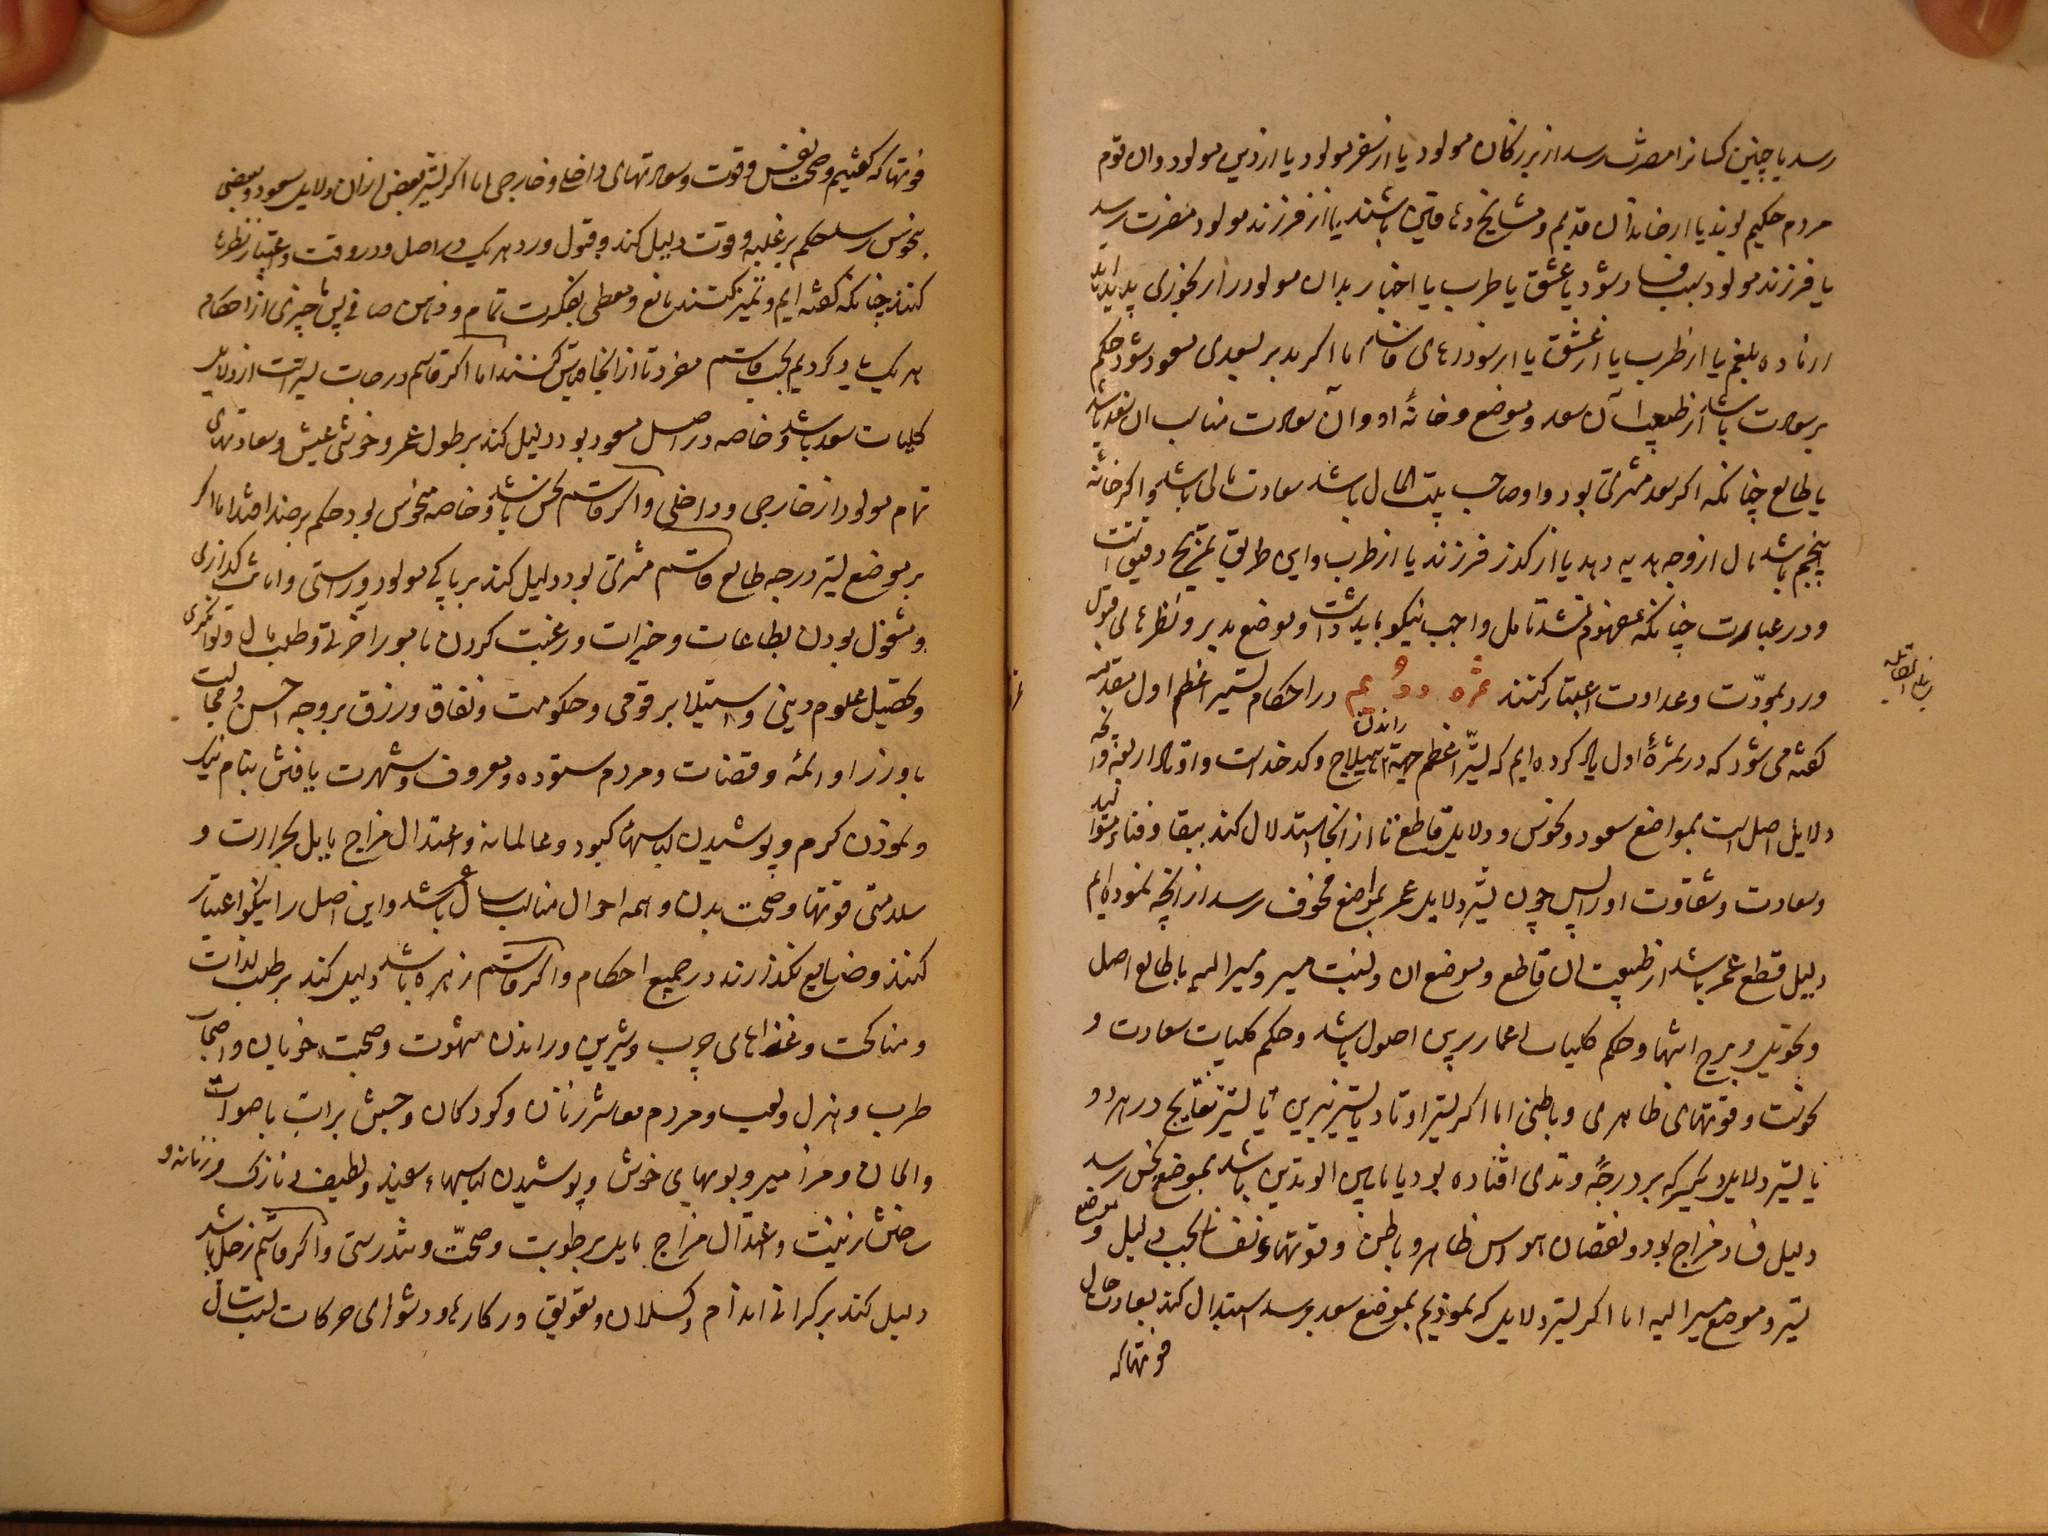 رسد یا چنین کسانرا مضرت رسد از بزرکان مولود یا از سفر مولود یا از دین مولود و ان قوم
مردم حکیم بوند یا از خاندان قدیم و مشایخ و دهاقین باشند یا از فرزند مولود مضرت رسد
یا فرزند مولود بسبب فساد شود یا عشق یا طرب یا اخبار بدان مولود را رنجوری پدید اید
از ماده بلغم یا از طرب یا از عشق یا از سودرهای فاسد اما اکر مدبر بسعدی مسعود شود حکم
بر سعادت باشد از طبیعت آن سعد و موضع و خانهٔ او و آن سعادت مناسب ان سعد باشد
با طالع چنانکه اکر سعد مشتری بود و او صاحب بیت المال باشد سعادت مالی باشد و اکر خانه
پنجم باشد مال از وجه هدیه دهد یا از کدر فرزند یا از طرب و این طریق تمزیج دقیق است
و در عبارت چنانکه مفهوم شد تامل واجب نیکو باید داشت و موضع مدبر و نظرهای قبول
و رد بمودّت و عداوت اعتبار کنند ثمره دوُم عم در احکام تسییر اعظم اول مقدمه
کفته می شود که در ثمرهٔ اول یاد کرده ایم که تسیّر اعظم جهة راندن هیلاج و کدخداست و اوتاد اربعه و انچه
دلایل اصل است بمواضع سعود و نحوس و دلایل قاطع تا از انجا استدلال کند ببقا و فناء مولود
و سعادت و شقاوت او پس چون تسیر دلایل عمر بمواضع مخوف رسد از انچه نموده ایم
دلیل قطع عمر باشد از طبیعت ان قاطع و موضع ان و نسبت مسیر و مسیر الیه با طالع اصل
و تحویل و برج انتها و حکم کلیات اعمار برین اصول باشد و حکم کلیات سعادت و
نحوست و قوتهای ظاهری و باطنی اما اکر تسیر اوتاد یا تسیر نیرین یا تسیر نتایج در هر دو
یا تسیر دلایل دیکر که بر درجهٔ وتدی افتاده بود یا مابین الوتدین باشد بموضع نحس رسد
دلیل فساد مزاج بود و نقصان حواس ظاهر و باطن و قوتهاء نفسانی بحسب دلیل و موضع
تسیر و موضع مسیر الیه اما اکر تسیر دلایل که نمودیم بموضع سعد برسد استدلال کند بعادت حال
قوتها که
قوتها که کفتیم و صحت نفس و قوت و سعادتهای داخلی و خارجی اما اکر تسیر بعض از ان دلایل بسعود و بعضی
بنحوس رسد حکم بر غلبه و قوت دلیل کند و قبول و رد هر یک در اصل و در وقت و اعتبار نظرها
کنند چنانکه کفته ایم و تمیز کنند مانع و معطی بفکرت تمام و ذهن صافی پس چیزی از احکام
هر یک یاد کردیم بحسب قاسم مفرد تا از انجا قیاس کنند اما اکر قاسم درجات تسیرات از دلایل
کلیات سعد باشد و خاصه در اصل مسعود بود دلیل کند بر طول عمر و خوشی عیش و سعادتهای
تمام مولود از خارجی و داخلی و اکر قاسم نحس باشد و خاصه منحوس بود حکم بر ضد افتد اما اکر
بر موضع تسیر درجه طالع قاسم مشتری بود دلیل کند بر پاکی مولود و راستی و امانت گذاری
و مشغول بودن بطاعات و خیرات و رغبت کردن بامور آخرتی و طلب مال و توانکری
و تحصیل علوم دینی و استیلا بر قومی و حکومت و نفاق و رزق بر وجه احسن و مجالست
با وزرا و ائمه و قضات و مردم ستوده و معروف و شهرت یافتن بنام نیک
و نمودن کرم و پوشیدن لباسهای کبود و عالمانه و اعتدال مزاج مایل بحرارت و
سلامتی قوتها و صحت بدن و همه احوال مناسب سال باشد و این اصل را نیکو اعتبار
کنند و ضایع نکذارند در جمیع احکام و اکر قاسم زهره باشد دلیل کند بر طلب لذات
و مناکحت و غذاهای چرب و شیرین و راندن شهوت و صحبت خوبان و اصحاب
طرب و هزل و لعب و مردم معاشر زنان و کودکان و جستن مراتب باصوات
و الحان و مزامیر و بویهای خوش و پوشیدن لباسهاء سفید و لطیف و نازک و زنانه و
ساختن زینت و اعتدال مزاج مایل برطوبت و صحّت و تندرستی و اکر قاسم زحل باشد
دلیل کند بر کرانی اندام و کسلان و تعویق در کارها و دشواری حرکات بنسبت سال